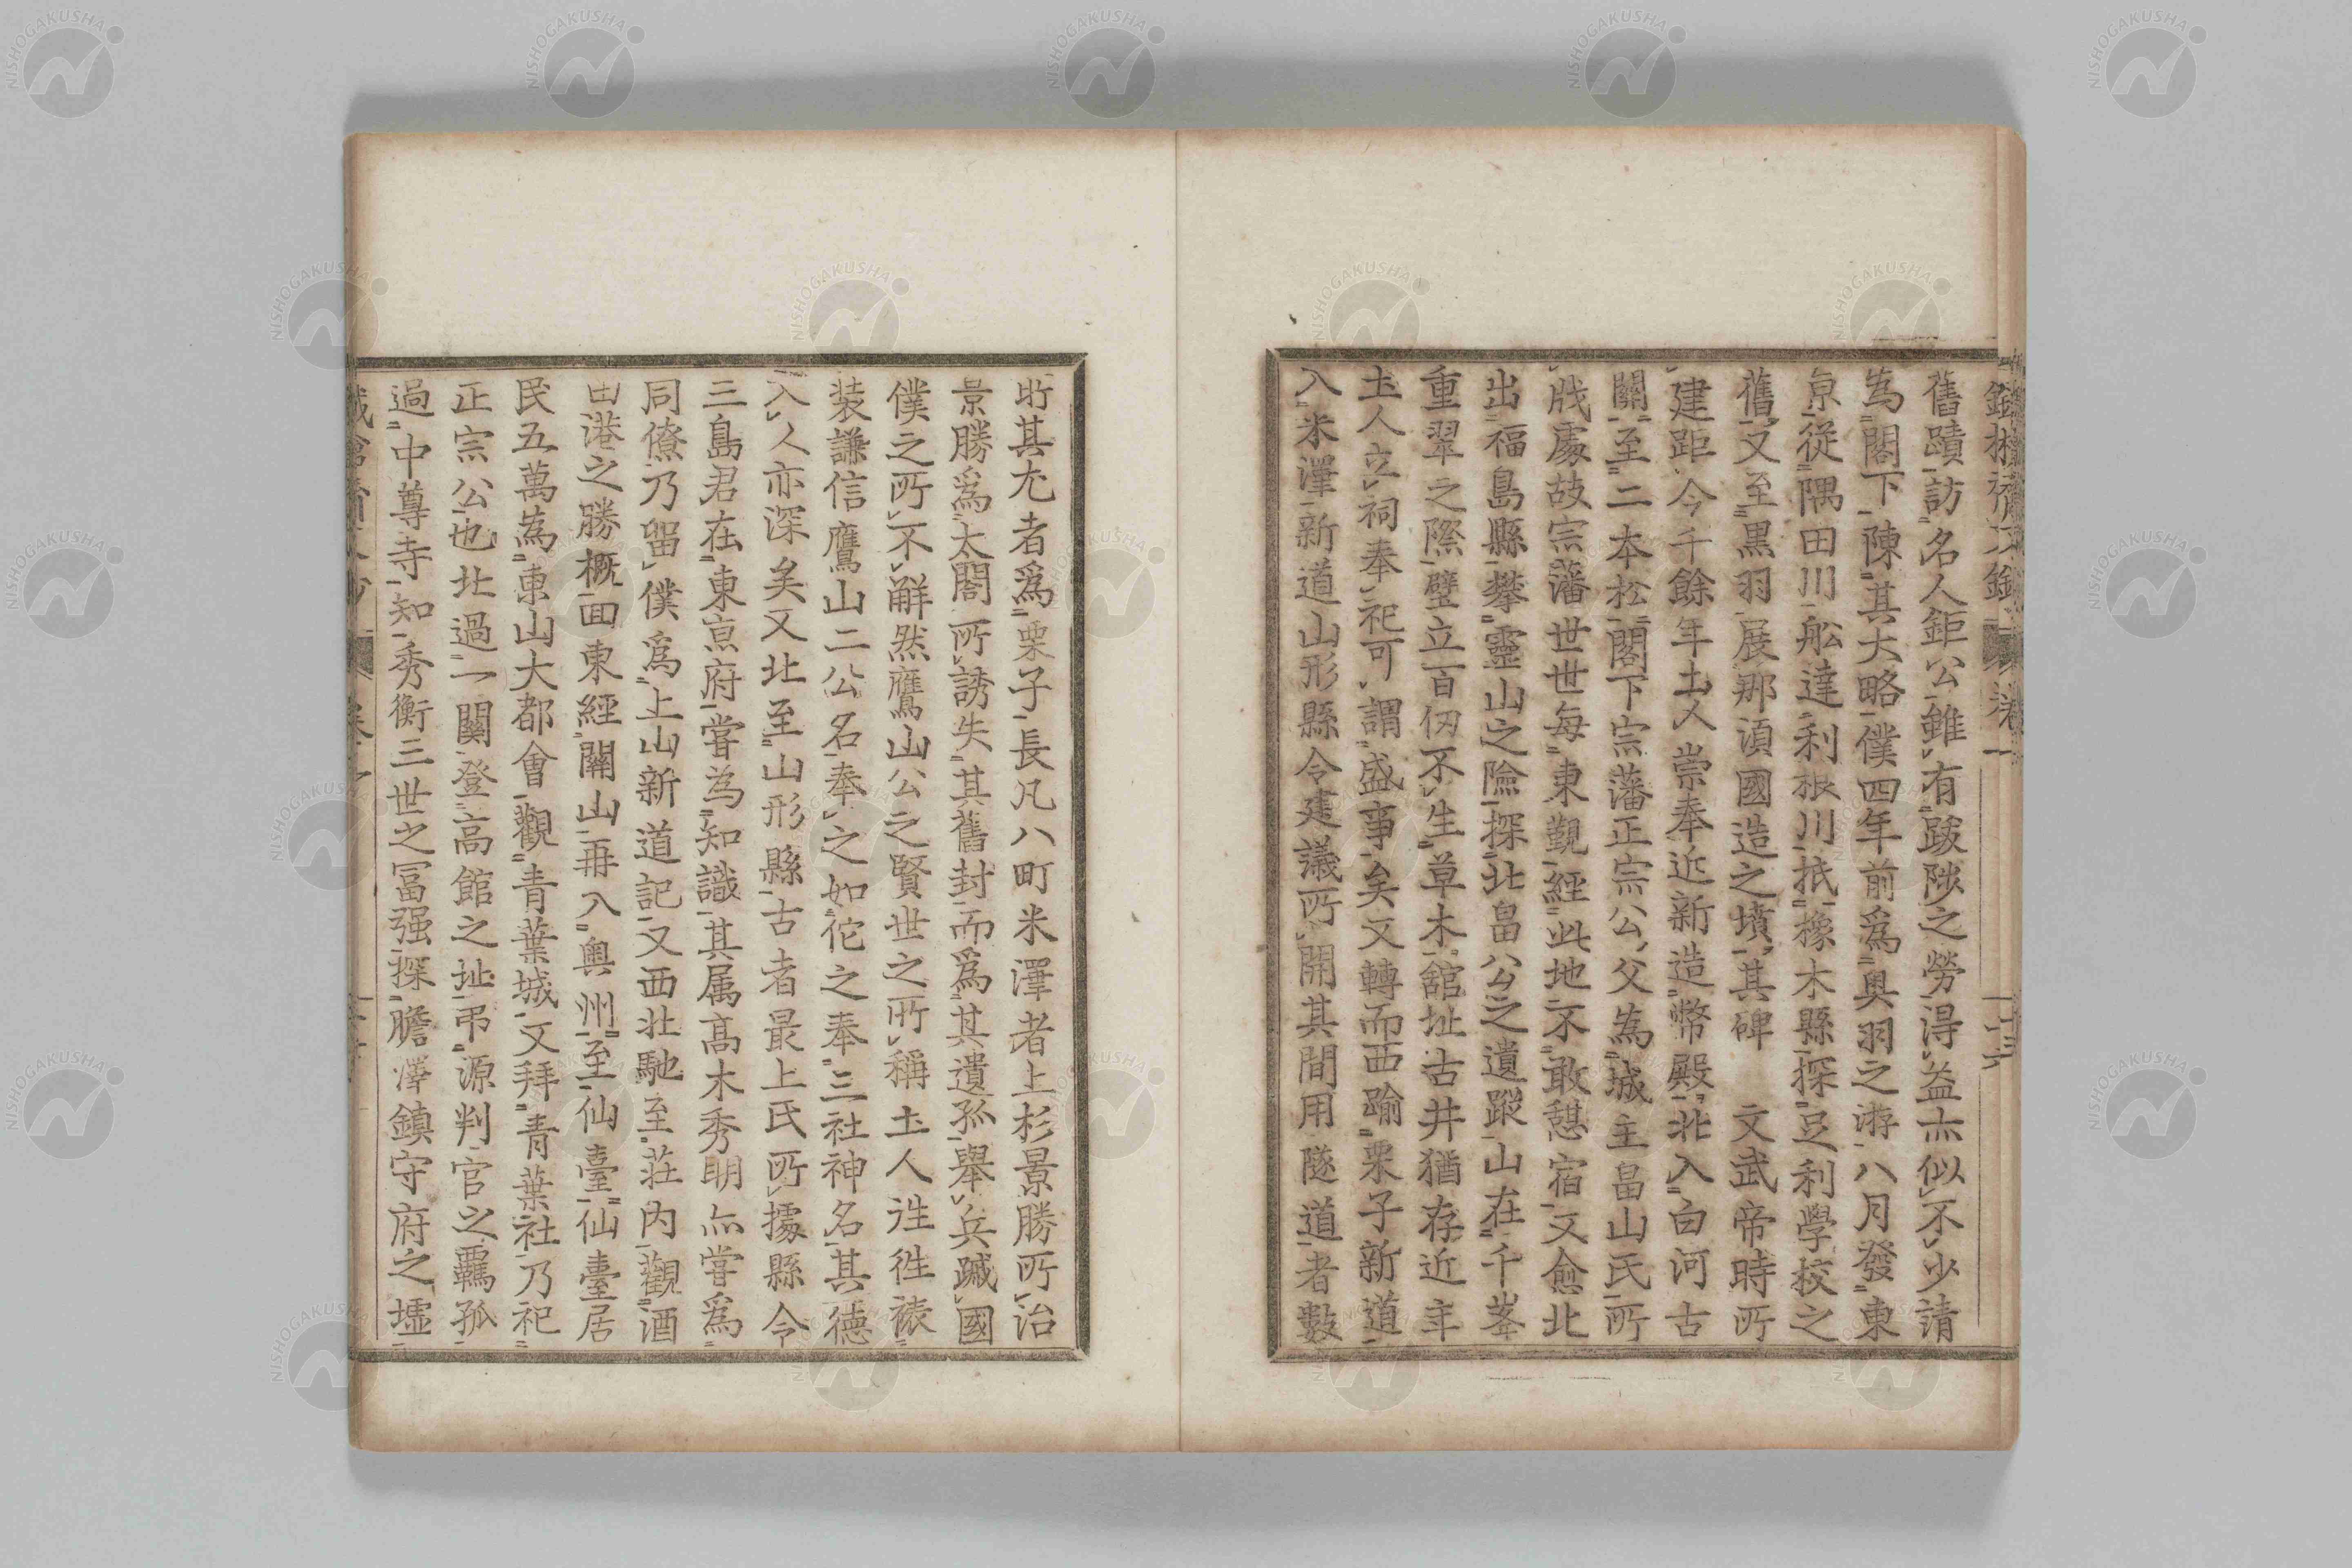 舊蹟訪名人鉅公雖有跋陟之勞得益亦似不少請
為閣下陳其大略僕四年前爲奥羽之游八月發東
京從隅田川舩達利根川抵橡木縣探足利學校之
舊又至黒羽展那須國造之墳其碑　文武帝時所
建距今千餘年土人崇奉近新造幣殿北入白河古
關至二本松閣下宗藩正宗公父為城主畠山氏所
戕處故宗藩世世毎東覲經此地不敢憩宿又愈北
出福島縣攀靈山之險探北畠公之遺蹤山在千峯
重翠之際壁立百仞不生草木舘址古井猶存近年
土人立祠奉祀可謂盛事矣又轉而西踰栗子新道
入米澤新道山形縣令建議所開其間用隧道者數
所其尤者爲栗子長凡八町米澤者上杉景勝所治
景勝爲太閤所誘失其舊封而爲其遺孤舉兵蹙國
僕之所不解然鷹山公之賢世之所稱土人徃徃裱
装謙信鷹山二公名奉之如佗之奉三社神名其徳
入人亦深矣又北至山形縣古者最上氏所據縣令
三島君在東京府嘗為知識其属高木秀明亦嘗爲
同僚乃留僕爲上山新道記又西北馳至荘内觀酒
田港之勝概囬東經關山再入奥州至仙臺仙臺居
民五萬為東山大都會觀青葉城又拜青葉社乃祀
正宗公也北過一關登高館之址弔源判官之羈孤
過中尊寺知秀衡三世之冨强探膽澤鎮守府之墟